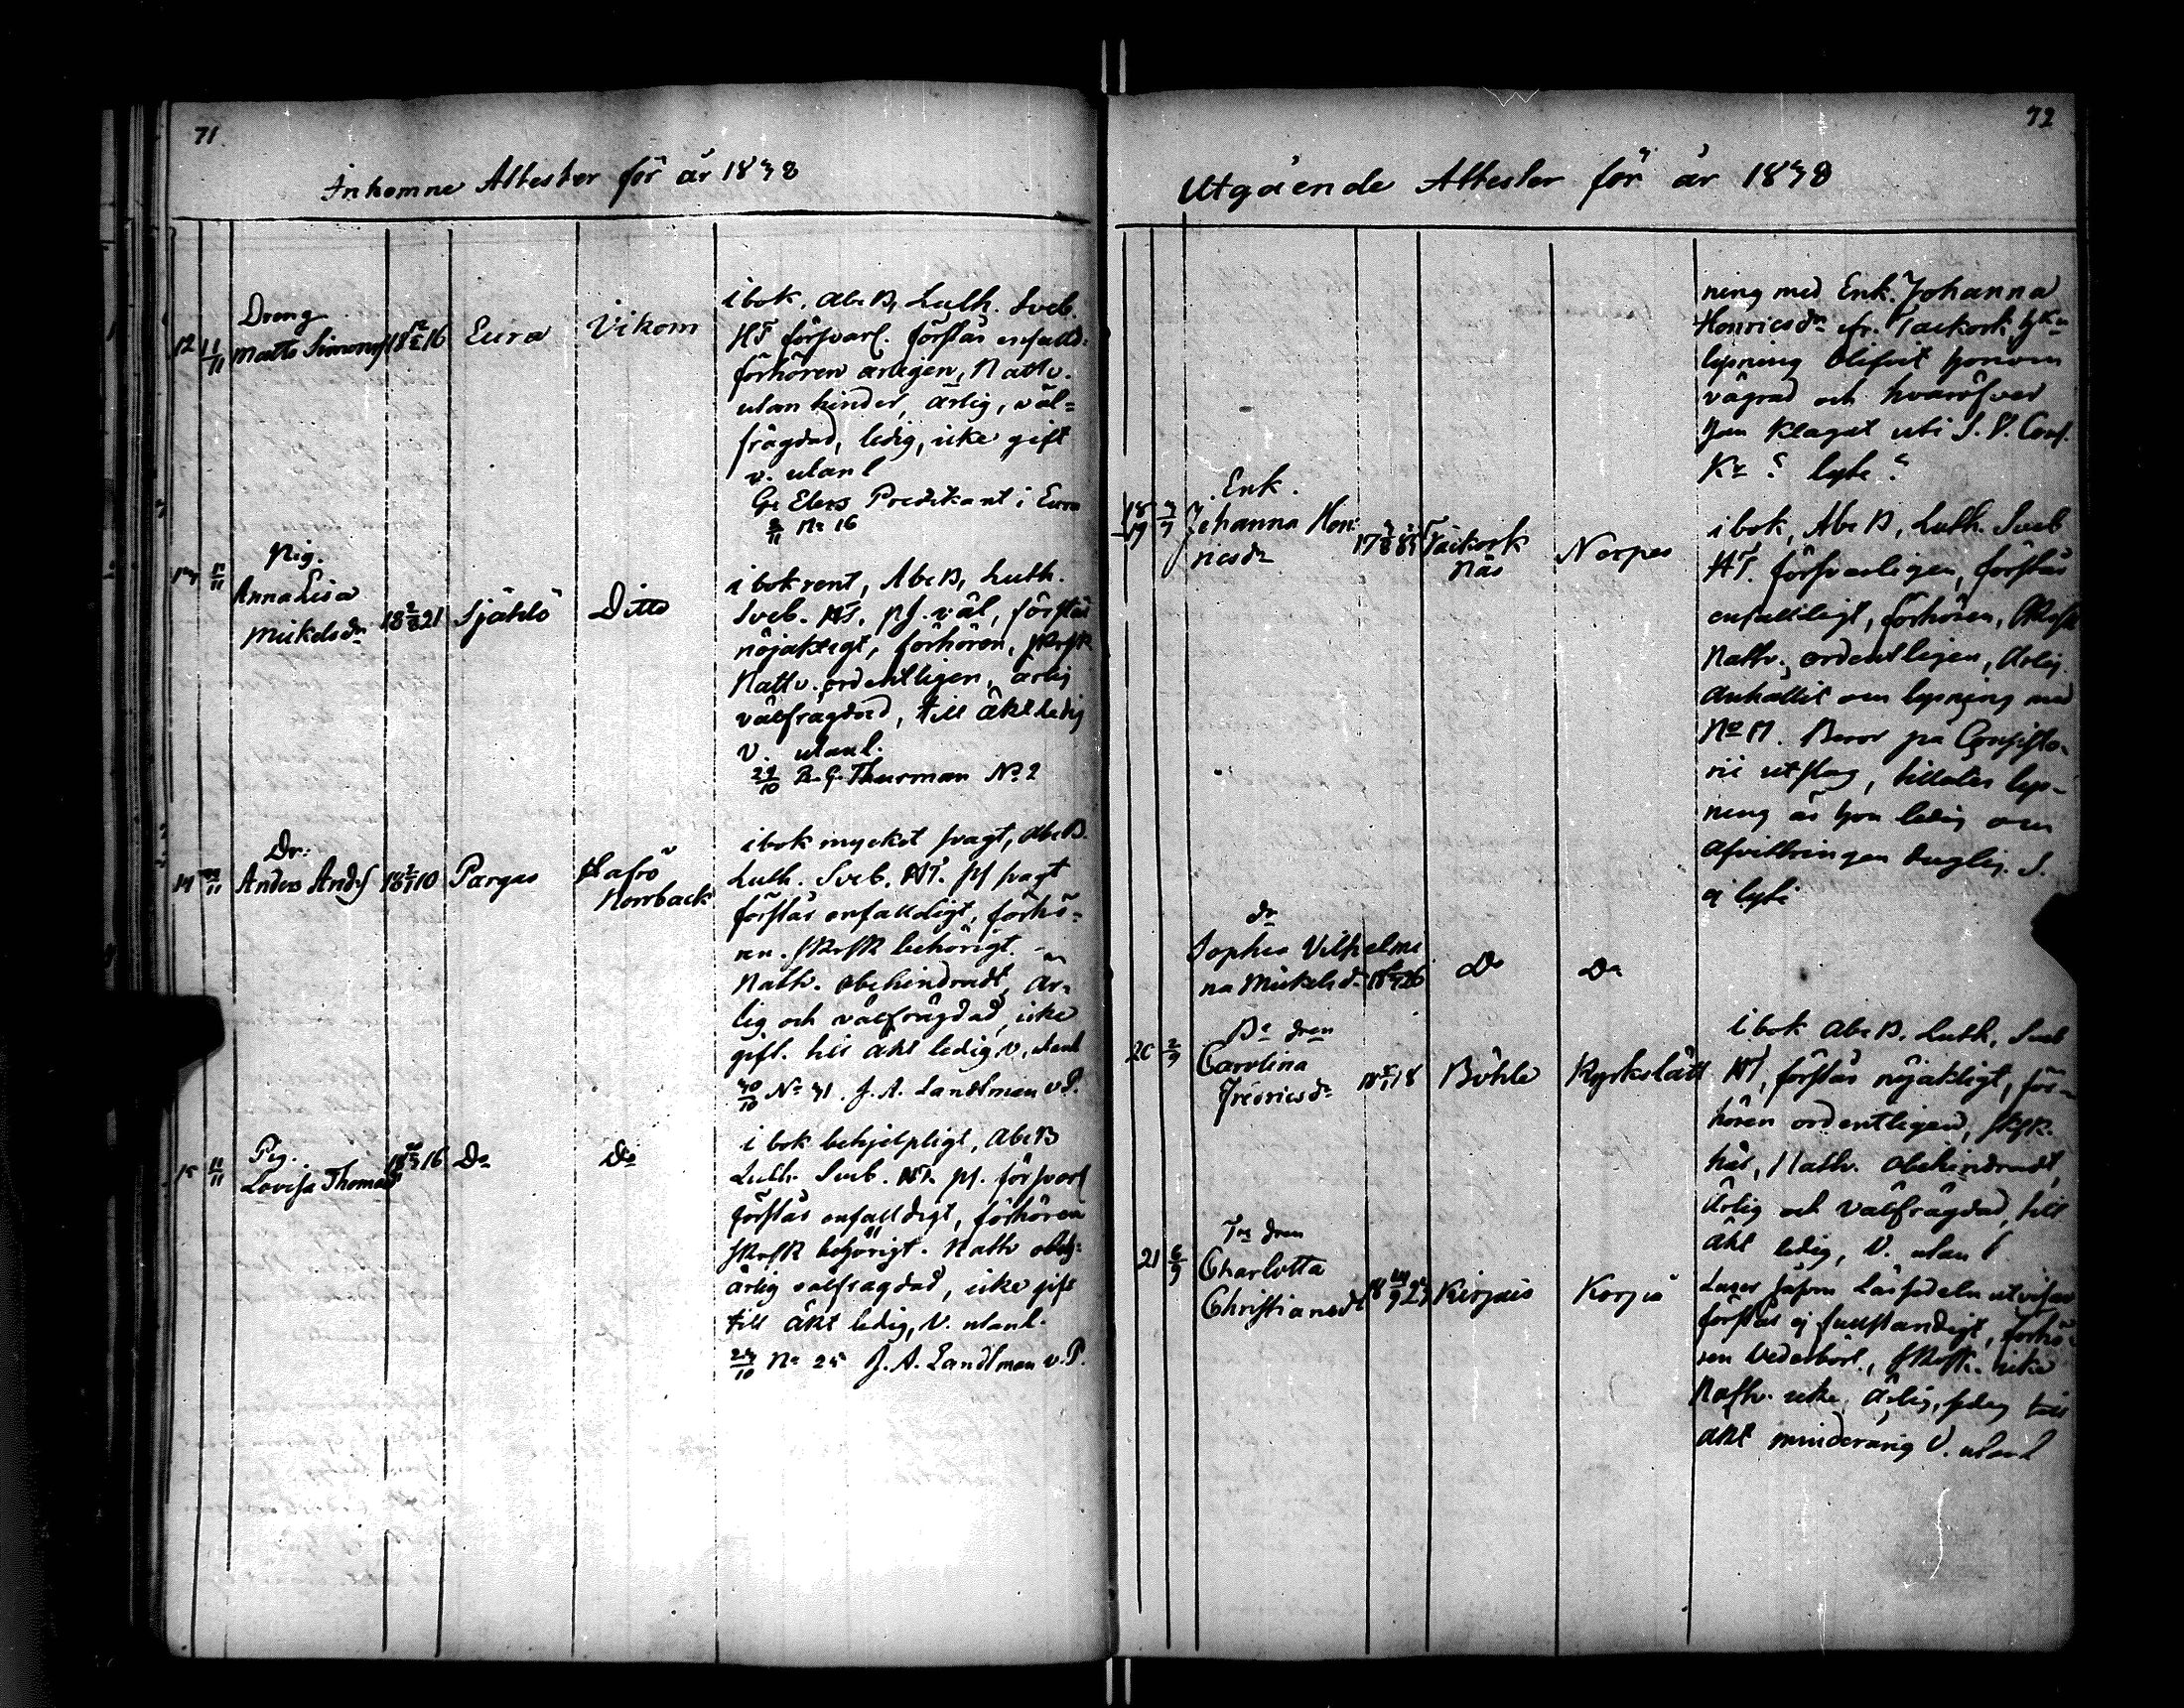 71
Inkomne Attester för år 1838
Dreng
12 11/11 Matts Simonss 18 16 Eura Vikom
i bok, Abc B, Luth. Sveb.
HT försvarl. förstår enfalld.
förhören årligen, Nattv.
utan hinder, ärlig, väl-
frägdad, ledig, icke gift
v. utan l
Gr Elers Predikant i Eura
2/11 No 16
Pig.
13 11/11 Anna Lisa
Mickelsdr 18 2/8 21 Sjählö Ditto
i bok rent, Abc B, Luth.
Sveb. HT. pf. väl, förstår
nöjaktigt, förhören, skrift
Nattv. ordentligen, ärlig
välfrägdad, till äkt. ledig
v. utan l.
29/10 R. G. Thurman No 2
Dr:
14 11/11 Anders Andss 18 10 Pargas Hafrö
Norrback
i bok mycket svagt, Abc B.
Luth. Sveb. HT. pf svagt
förstår enfalldigt, förhö-
ren. skrift behörigt.
Nattv. obehindradt, är-
lig och välfrägdad, icke
gift. till äkt ledig v. utan l
30/10 No 31. J. A. Landtman v. P.
Pig.
15 11/11 Lovisa Thomasdr 18 16 Do Do
i bok behjelpligt, Abc B
Luth. Sveb. HT. pf. försvarl
förstår enfalldigt, förhören
skrift behörigt. Nattv obeh:
ärlig välfrägdad, icke gift
till äkt ledig, v. utan l.
23/10 No 25 J. A. Landtman v. P.
72
Utgående Attester för år 1838
ning med Enk. Johanna
Henricsdr fr. Taikork
lysning blifvit honom
vägrad och hvaröfver
han klagat uti
lyte
Enk.
18
19 3/9 Johanna Hen-
ricsdr 17 85 Taikork
Näs Nerpes
i bok, Abc B, Luth. Sveb
HT. försvarligen, förstår
enfalldigt, förhören, skrift
Nattv. ordentligen, ärlig
anhållit om lysning med
No 17. Beror på Consisto-
rii utslag, tillåtes lys-
ning är hon ledig om
afvittringen duglig. S.
ej lyte
dr
Sophia Vilhelmi
na Mickelsdr 18 26 Do Do
Bo dren
20 2/9 Carolina
Fredricsdr 18 18 Böhle Kyrkslätt
i bok Abc B. Luth. Sveb
HT, förstår nöjaktligt, för-
hören ordentligen, skrift
här, Nattv. obehindradt,
ärlig och välfrägdad, till
äkt ledig, V. utan l
Tor dren
21 6/9 Charlotta
Christiansdr 18 23 Kirjais Korpo
Läser såsom Läsesedeln utvisar
förstår ej fullständigt, förhö-
ren Vederbörl., skrift. icke
Nattv. icke, ärlig, till
äkt minderårig V. utan l